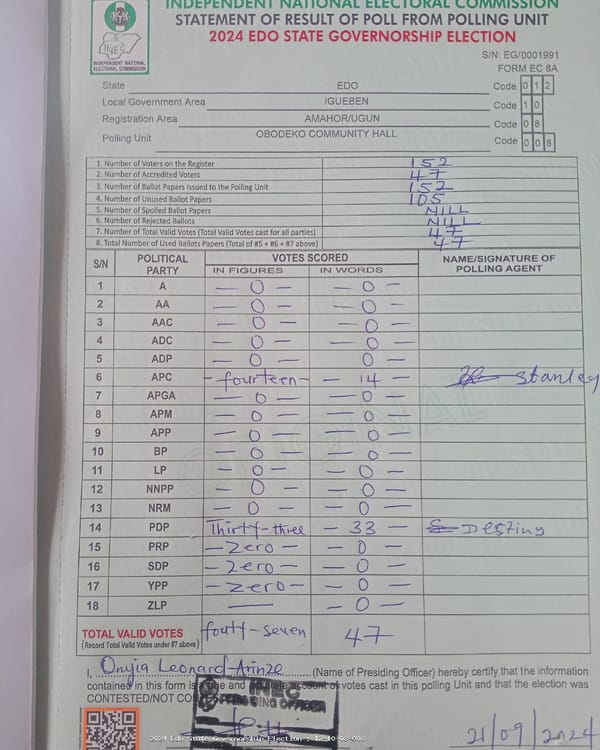 INDEPENDENT NATIONAL ELECTORAL COMMISSION
STATEMENT OF RESULT OF POLL FROM POLLING UNIT
2024 EDO STATE GOVERNORSHIP ELECTION
INEC
INDEPENDENT NATIONAL
ELECTORAL COMMISSION
S/N: EG/0001991
FORM EC 8A
State EDO Code 0 1 2
Local Government Area IGUEBEN Code 1 0
Registration Area AMAHOR/UGUN Code 0 8
Polling Unit OBODEKO COMMUNITY HALL Code 0 0 8
1. Number of Voters on the Register 152
2. Number of Accredited Voters 47
3. Number of Ballot Papers Issued to the Polling Unit 152
4. Number of Unused Ballot Papers 105
5. Number of Spoiled Ballot Papers NILL
6. Number of Rejected Ballots NILL
7. Number of Total Valid Votes (Total Valid Votes cast for all parties) 47
8. Total Number of Used Ballots Papers (Total of #5 + #6 + #7 above) 47
S/N POLITICAL PARTY VOTES SCORED NAME/SIGNATURE OF POLLING AGENT
IN FIGURES IN WORDS
1 A - 0 - - 0 -
2 AA - 0 - - 0 -
3 AAC - 0 - - 0 -
4 ADC - 0 - - 0 -
5 ADP - 0 - 0 -
6 APC - fourteen - - 14 - Stanley
7 APGA - 0 - - 0 -
8 APM - 0 - - 0 -
9 APP - 0 - - 0 -
10 BP - 0 - - 0 -
11 LP - 0 - - 0 -
12 NNPP - 0 - - 0 -
13 NRM - 0 - - 0 -
14 PDP Thirty-three - 33 - Destiny
15 PRP - Zero - - 0 -
16 SDP - Zero - - 0 -
17 YPP - Zero - - 0 -
18 ZLP — - 0 -
TOTAL VALID VOTES foutty-seven 47
(Record Total Valid Votes under #7 above)
I, Onyia Leonard-Arinze (Name of Presiding Officer) hereby certify that the information
contained in this form is true and of votes cast in this polling Unit and that the election was
CONTESTED/NOT
INEC
PRESIDING OFFICER
21/09/2024
2024 Edo State Governorship Election : 12-10-08-008